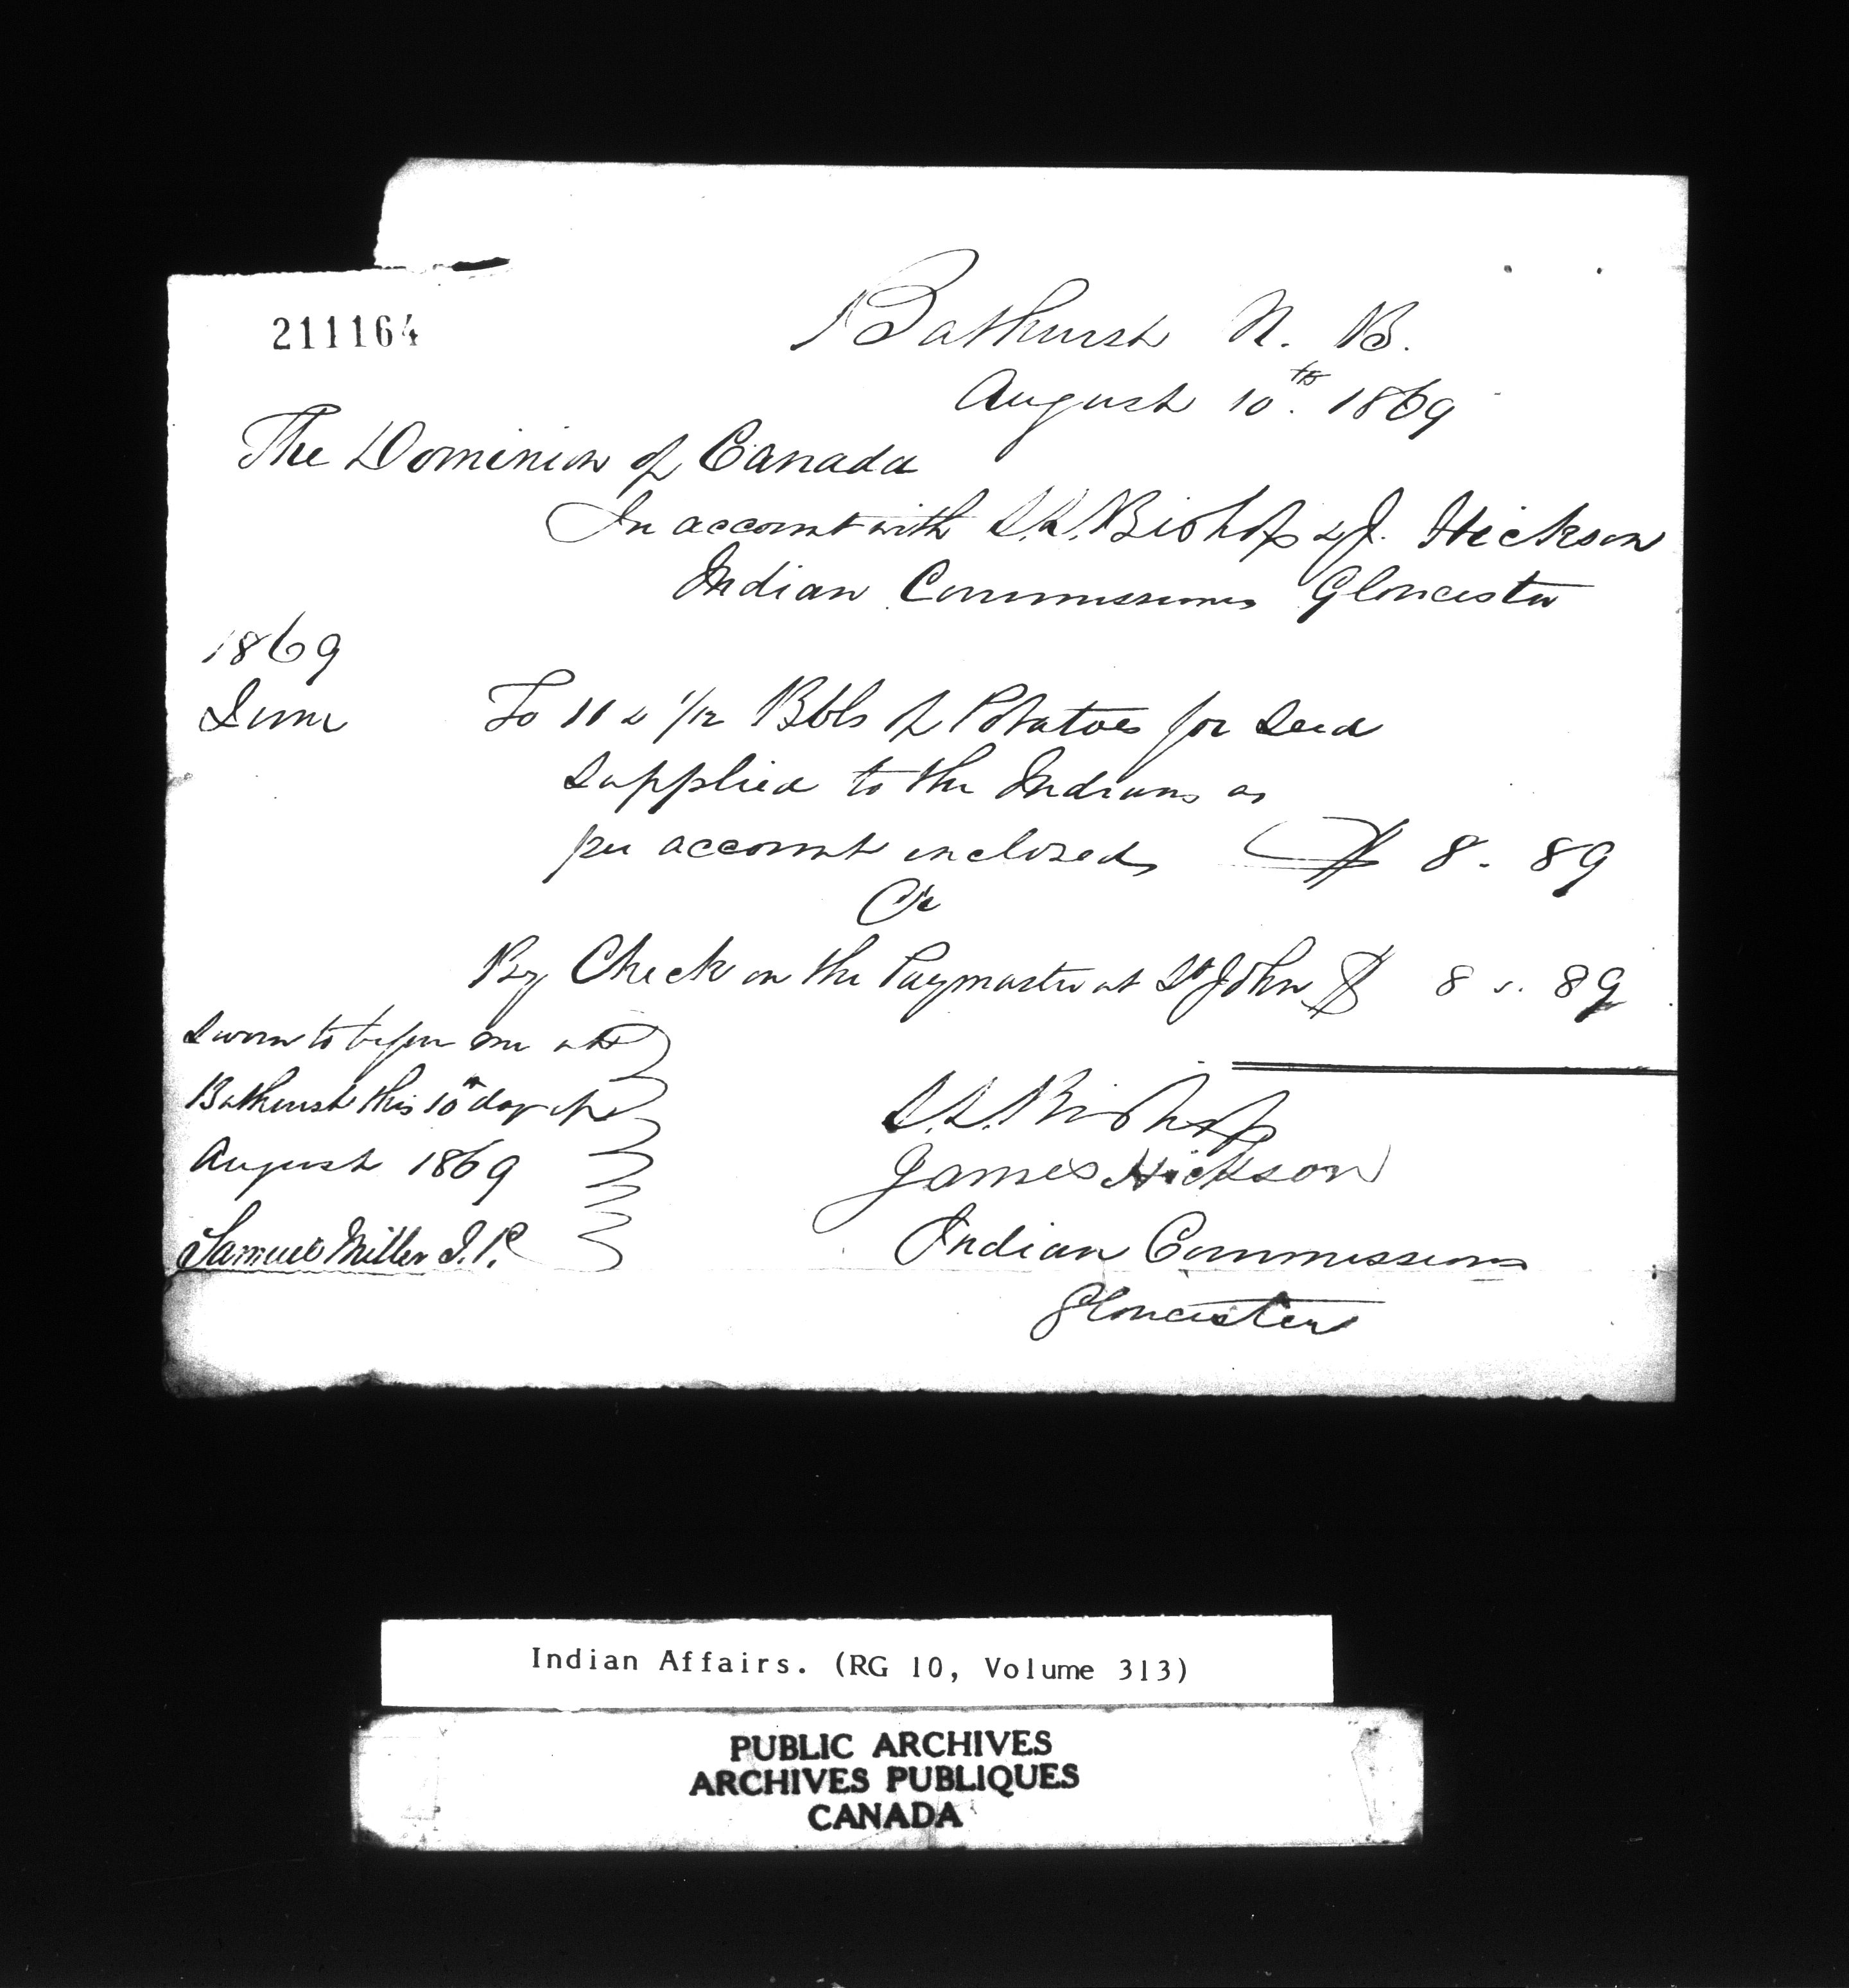 211164
Bathurst N. B.
August 10th. 1869
The Dominion of Canada
In account with S. L. Bishop & J. Hickson
Indian Commissioners Gloucester
1869
June To 11 & 1/12 Bbls of Potatoes for Seed
supplied to the Indians as
per account inclosed $ 8. 89
Cr
By Check on the Paymaster at St John $ 8. 89
Sworn to before me at
Bathurst this 10th day of
August 1869
Samuel Miller J. P.
S. L. Bishop
James Hickson
Indian Commissioners
Gloucester
Indian Affairs. (RG 10, Volume 313)
PUBLIC ARCHIVES
ARCHIVES PUBLIQUES
CANADA